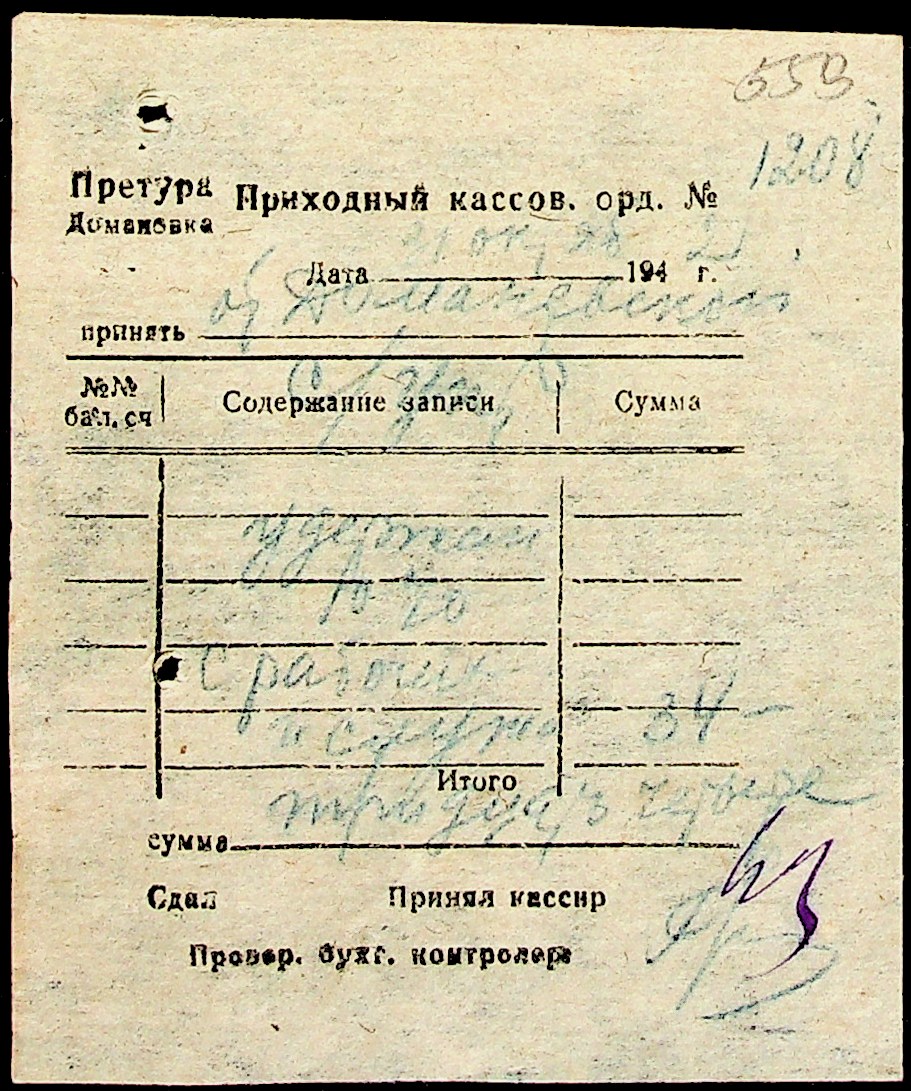 553
1208
Претура Приходный кассов. орд. №
Домановка
21 окт
Дата 194 г.
от Домановской
принять
№№ бал. сч Содержание записи Сумма
удержан
10 %
с рабочих
и служ 34 –
Итого
тридцать четыре
сумма
Сдал Принял кассир
Провер. бухг. контролер